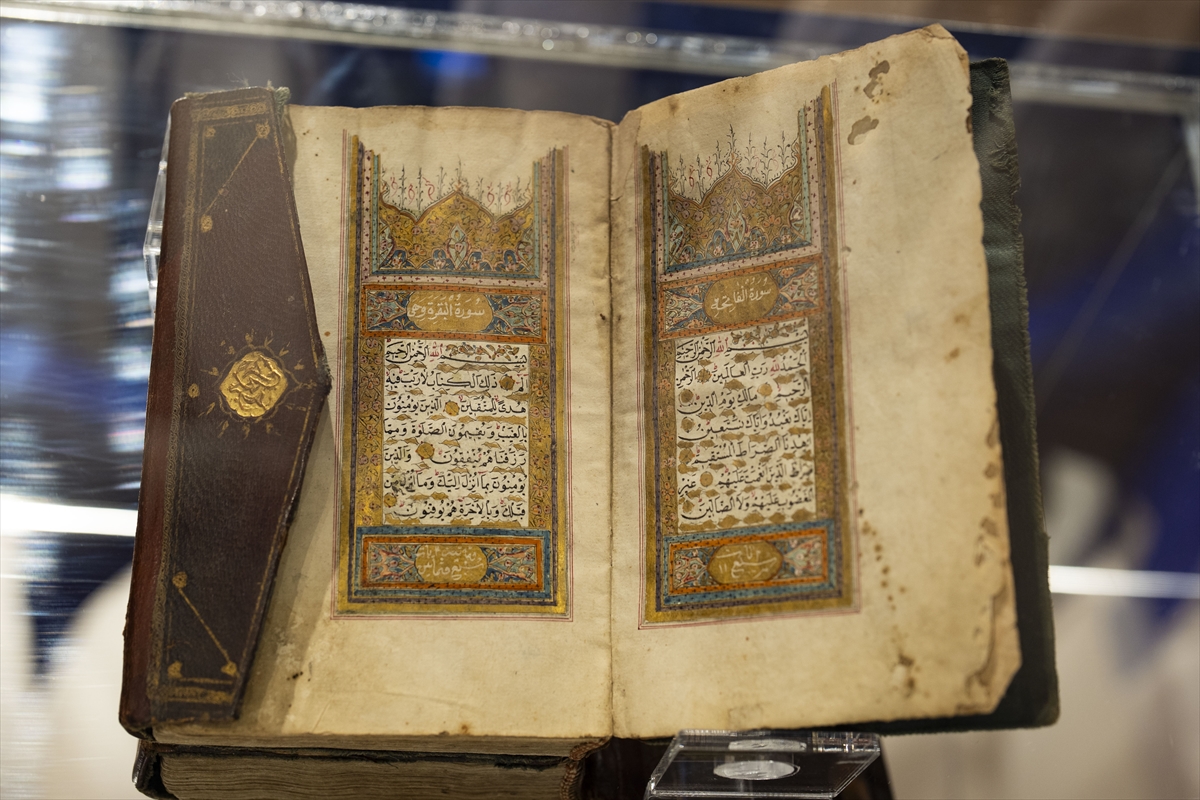 سورة الفاتحة
بسم الله الرحمن الرحيم
الحمد لله رب العالمين الرحمن
الرحيم مالك يوم الدين
اياك نعبد واياك نستعين
اهدنا الصراط المستقيم
صراط الذين انعمت عليهم غير
المغضوب عليهم ولا الضالين
سبع
سورة البقرة وهي
بسم الله الرحمن الرحيم
الم ذلك الكتاب لا ريب فيه
هدى للمتقين الذين يؤمنون
بالغيب ويقيمون الصلوة ومما
رزقناهم ينفقون والذين
يؤمنون بما انزل اليك وما انزل من
قبلك وبالاخرة هم يوقنون